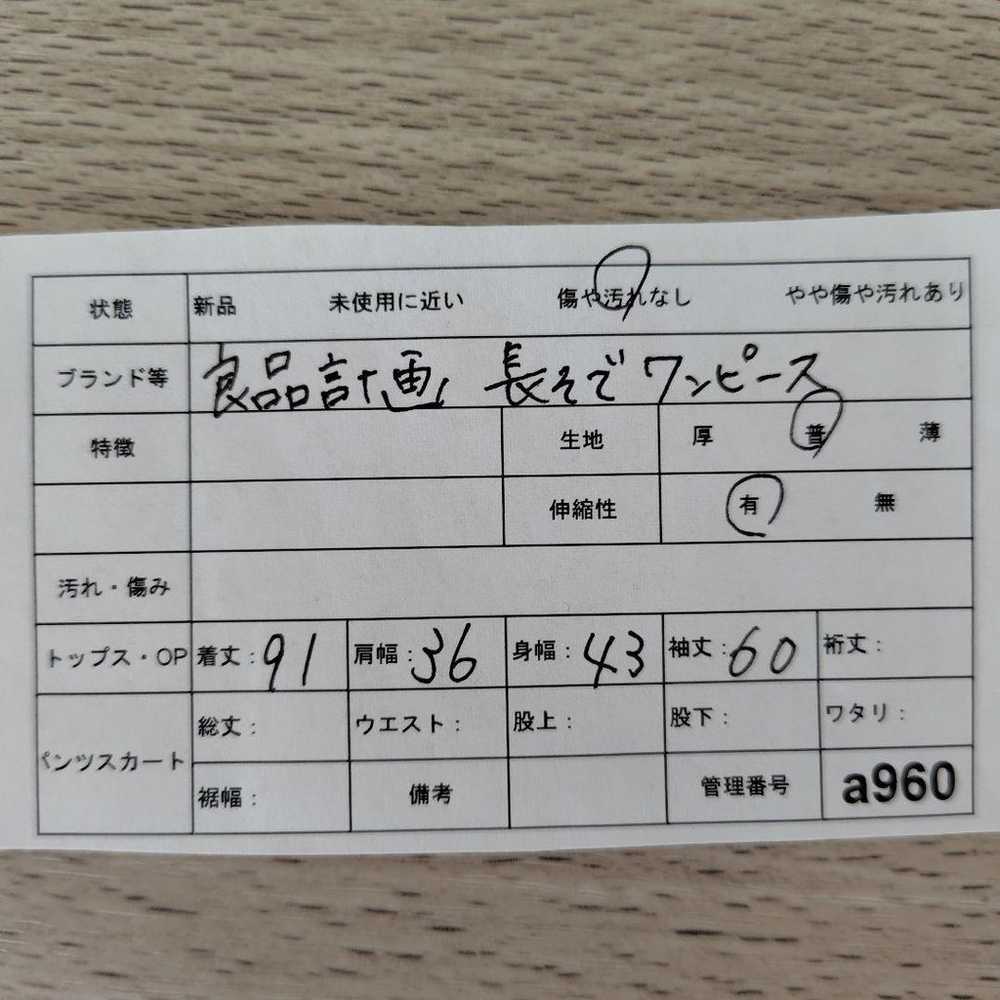 状態 新品 未使用に近い 傷や汚れなし やや傷や汚れあり
ブランド等 良品計画 長そでワンピース
特徴 生地 厚 普 薄
伸縮性 有 無
汚れ・傷み
トップス・OP 着丈：91 肩幅：36 身幅：43 袖丈：60 裄丈：
総丈： ウエスト： 股上： 股下： ワタリ：
パンツスカート
裾幅： 備考 管理番号 a960